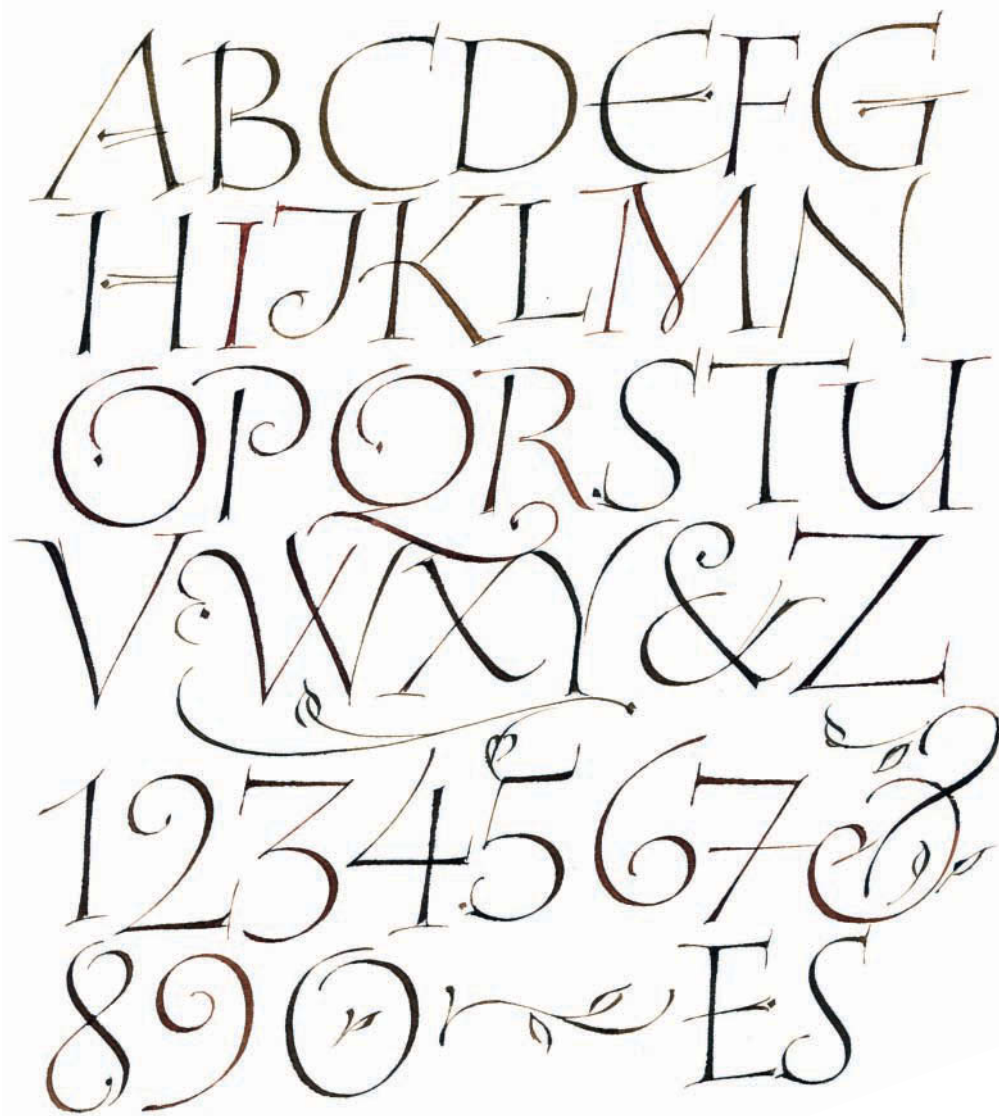 ABCDEFG
HIJKLMN
OPQRSTU
VWXY&Z
1234567&
890 ES